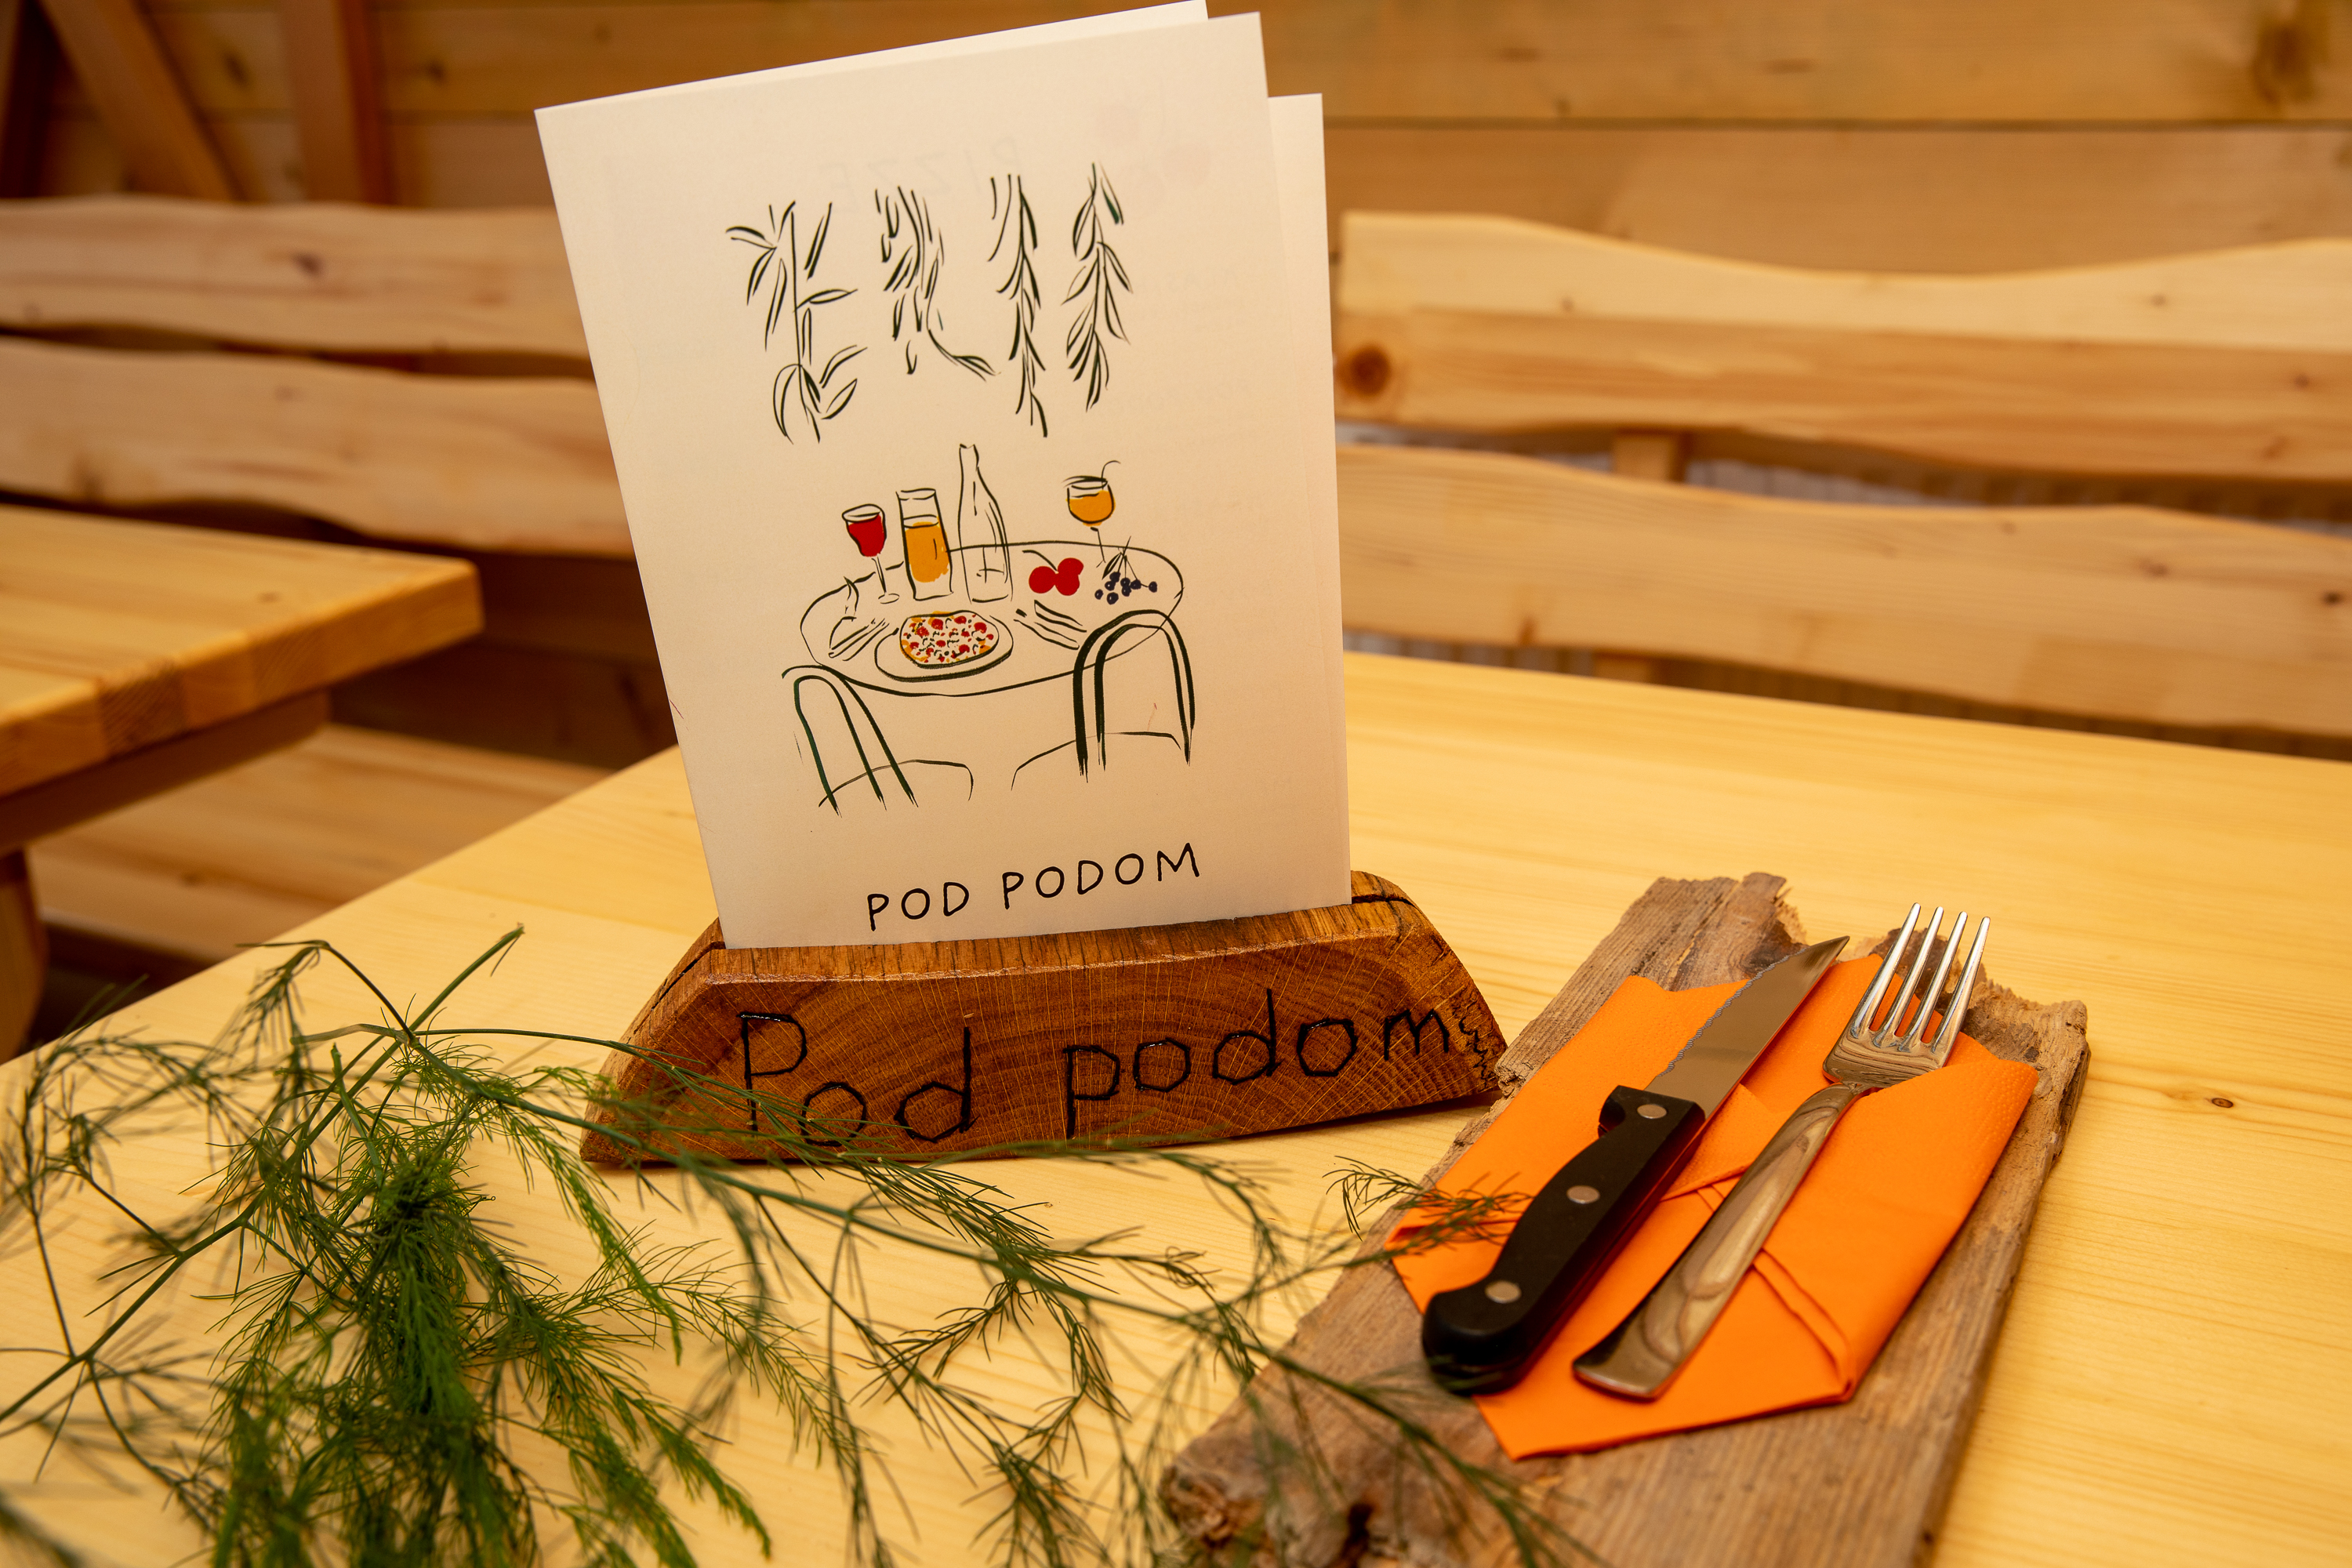 POD PODOM
Pod podom